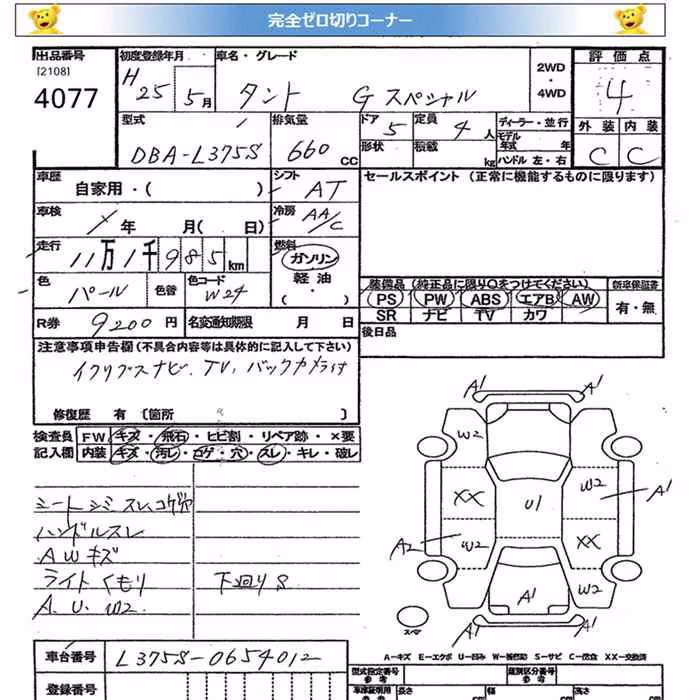 完全ゼロ切りコーナー
出品番号
[2108]
4077
初度登録年月
H 25 5月
車名・グレード
タント Gスペシャル
2WD
・
4WD
評価点
4
外装 内装
C C
型式
DBA-L375S
排気量
660 cc
ドア
5
定員
4人
形状
積載
kg
ディーラー・並行
モデル
年式 年
ハンドル 左・右
車歴
自家用・( )
シフト
AT
セールスポイント (正常に機能するものに限ります)
車検
年 月( 日)
冷房
AA/C
走行
11万1千985km
燃料
ガソリン
軽油
・( )
色
パール
色替
色コード
W24
装備品 (純正品に限り○をつけてください)
PS PW ABS エアB AW
SR ナビ TV カワ
新車保証書
有・無
R券 9200円
名変通知期限 月 日
後日品
注意事項申告欄(不具合内容等は具体的に記入して下さい)
イクリプスナビ、TV、バックカメラ付
修復歴 有 〔箇所 〕
検査員
記入欄
FW キズ・飛石・ヒビ割・リペア跡・×要
内装 キズ・汚レ・コゲ・穴・スレ・キレ・破レ
シートシミスレ、コゲ穴
ハンドルスレ
AWキズ
ライトくもり
下廻りS
A、U、W2
A1
A1
W2
XX
W2
A2
U1
W2
A1
XX
W2
A1
A1
A1
スマ
A−キズ E−エクボ U−凹み W−補修跡 S−サビ C−腐食 XX−交換済
車台番号
L375S-0654012
登録番号
型式指定番号
参考
類別区分番号
参考
車庫証明用
参考
長さ
幅
高さ